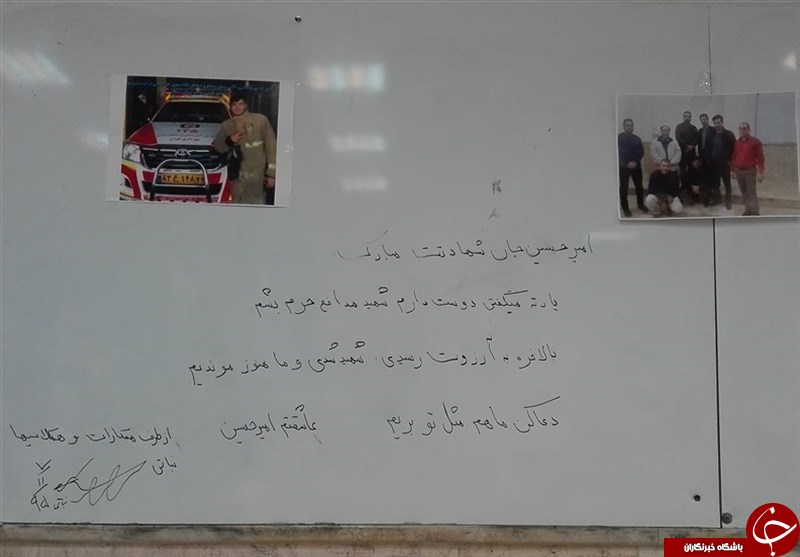 امیرحسین جان شهادتت مبارک
یادته میگفتی دوست دارم شهید مدافع حرم بشم
بالاخره به آرزوت رسیدی. شهید شدی و ما هنوز موندیم
دعا کن ما هم مثل تو بریم
عاشقتم امیرحسین
از طرف و همکلاسیها
نباتی
باشگاه خبرنگاران